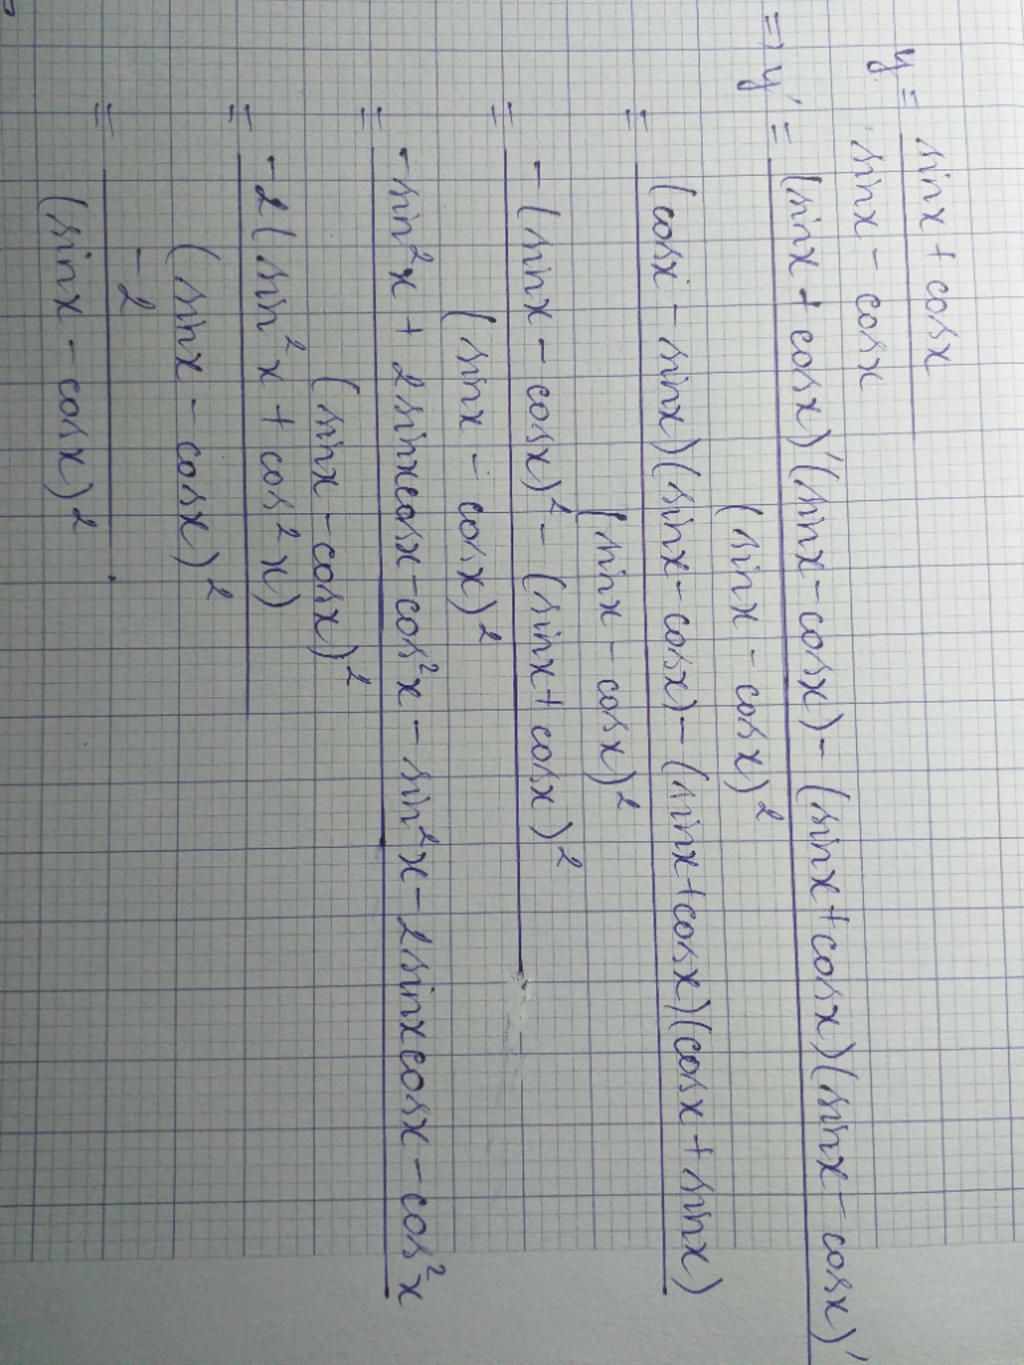 y = (sinx + cosx) / (sinx - cosx)
=> y' = ((sinx + cosx)'(sinx - cosx) - (sinx + cosx)(sinx - cosx)') / (sinx - cosx)²
= ((cosx - sinx)(sinx - cosx) - (sinx + cosx)(cosx + sinx)) / (sinx - cosx)²
= (-(sinx - cosx)² - (sinx + cosx)²) / (sinx - cosx)²
= (-sin²x + 2sinxcosx - cos²x - sin²x - 2sinxcosx - cos²x) / (sinx - cosx)²
= (-2(sin²x + cos²x)) / (sinx - cosx)²
= (-2) / (sinx - cosx)²